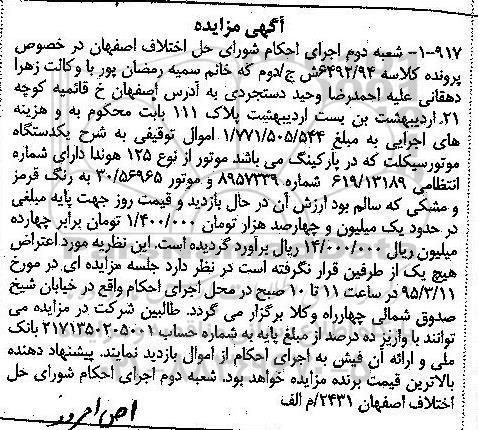 آگهی مزایده
۱-۹۱۷- شعبه دوم اجرای احکام شورای حل اختلاف اصفهان در خصوص
پرونده کلاسه ۶۴۹۳/۹۴ش ج/دوم که خانم سمیه رمضان پور با وکالت زهرا
دهقانی علیه احمدرضا وحید دستجردی به آدرس اصفهان خ قائمیه کوچه
۲۱.اردیبهشت بن بست اردیبهشت پلاک ۱۱۱ بابت محکوم به و هزینه
های اجرایی به مبلغ ۱/۷۷۱/۵۰۵/۵۴۴ اموال توقیفی به شرح یکدستگاه
موتورسیکلت که در پارکینگ می باشد موتور از نوع ۱۲۵ هوندا دارای شماره
انتظامی ۶۱۹/۱۳۱۸۹ شماره ۸۹۵۷۳۳۹ و موتور ۳۰/۵۶۹۶۵ به رنگ قرمز
و مشکی که سالم بود ارزش آن در حال بازدید و قیمت روز جهت پایه مبلغی
در حدود یک میلیون و چهارصد هزار تومان ۱/۴۰۰/۰۰۰ تومان برابر چهارده
میلیون ریال ۱۴/۰۰۰/۰۰۰ ریال برآورد گردیده است. این نظریه مورد اعتراض
هیچ یک از طرفین قرار نگرفته است در نظر دارد جلسه مزایده ای در مورخ
۹۵/۳/۱۱ در ساعت ۱۱ تا ۱۰ صبح در محل اجرای احکام واقع در خیابان شیخ
صدوق شمالی چهارراه وکلا برگزار می گردد. طالبین شرکت در مزایده می
توانند با واریز ده درصد از مبلغ پایه به شماره حساب ۲۱۷۱۳۵۰۲۰۵۰۰۱ بانک
ملی و ارائه آن فیش به اجرای احکام از اموال بازدید نمایند. پیشنهاد دهنده
بالاترین قیمت برنده مزایده خواهد بود. شعبه دوم اجرای احکام شورای حل
اختلاف اصفهان ۲۴۳۱/م الف
امروز